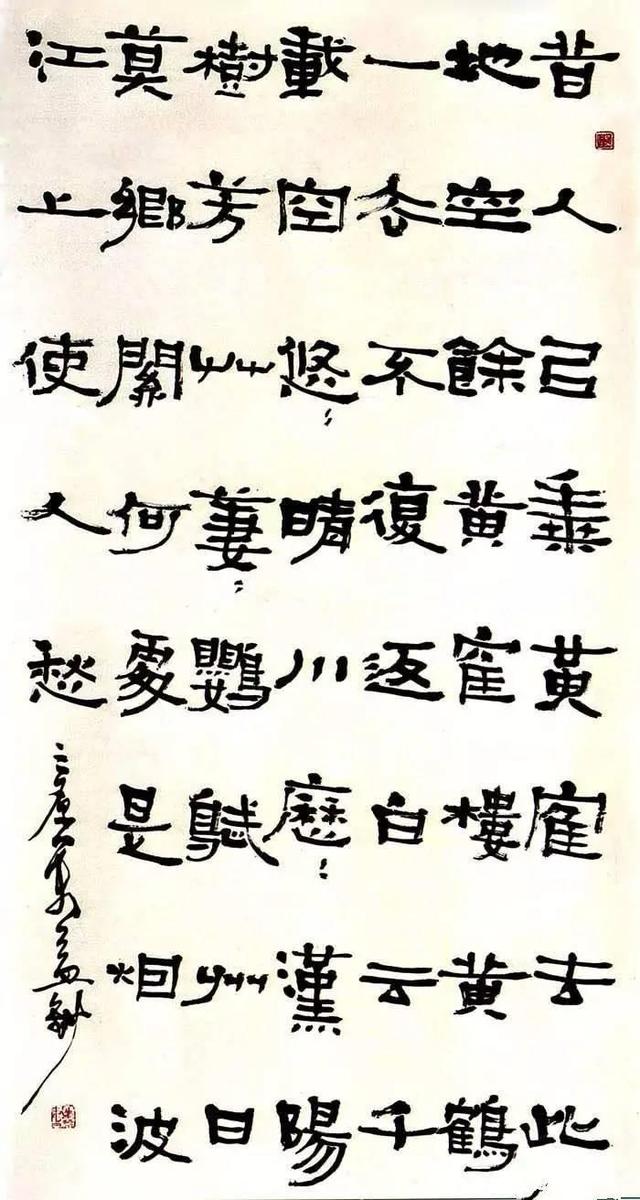 昔人已乘黃寉去此
地空餘黃寉樓黃鶴
一去不復返白云千
載空悠〻晴川歷〻漢陽
樹芳艸萋〻鸚鵡州日
莫鄉關何處是烟波
江上使人愁